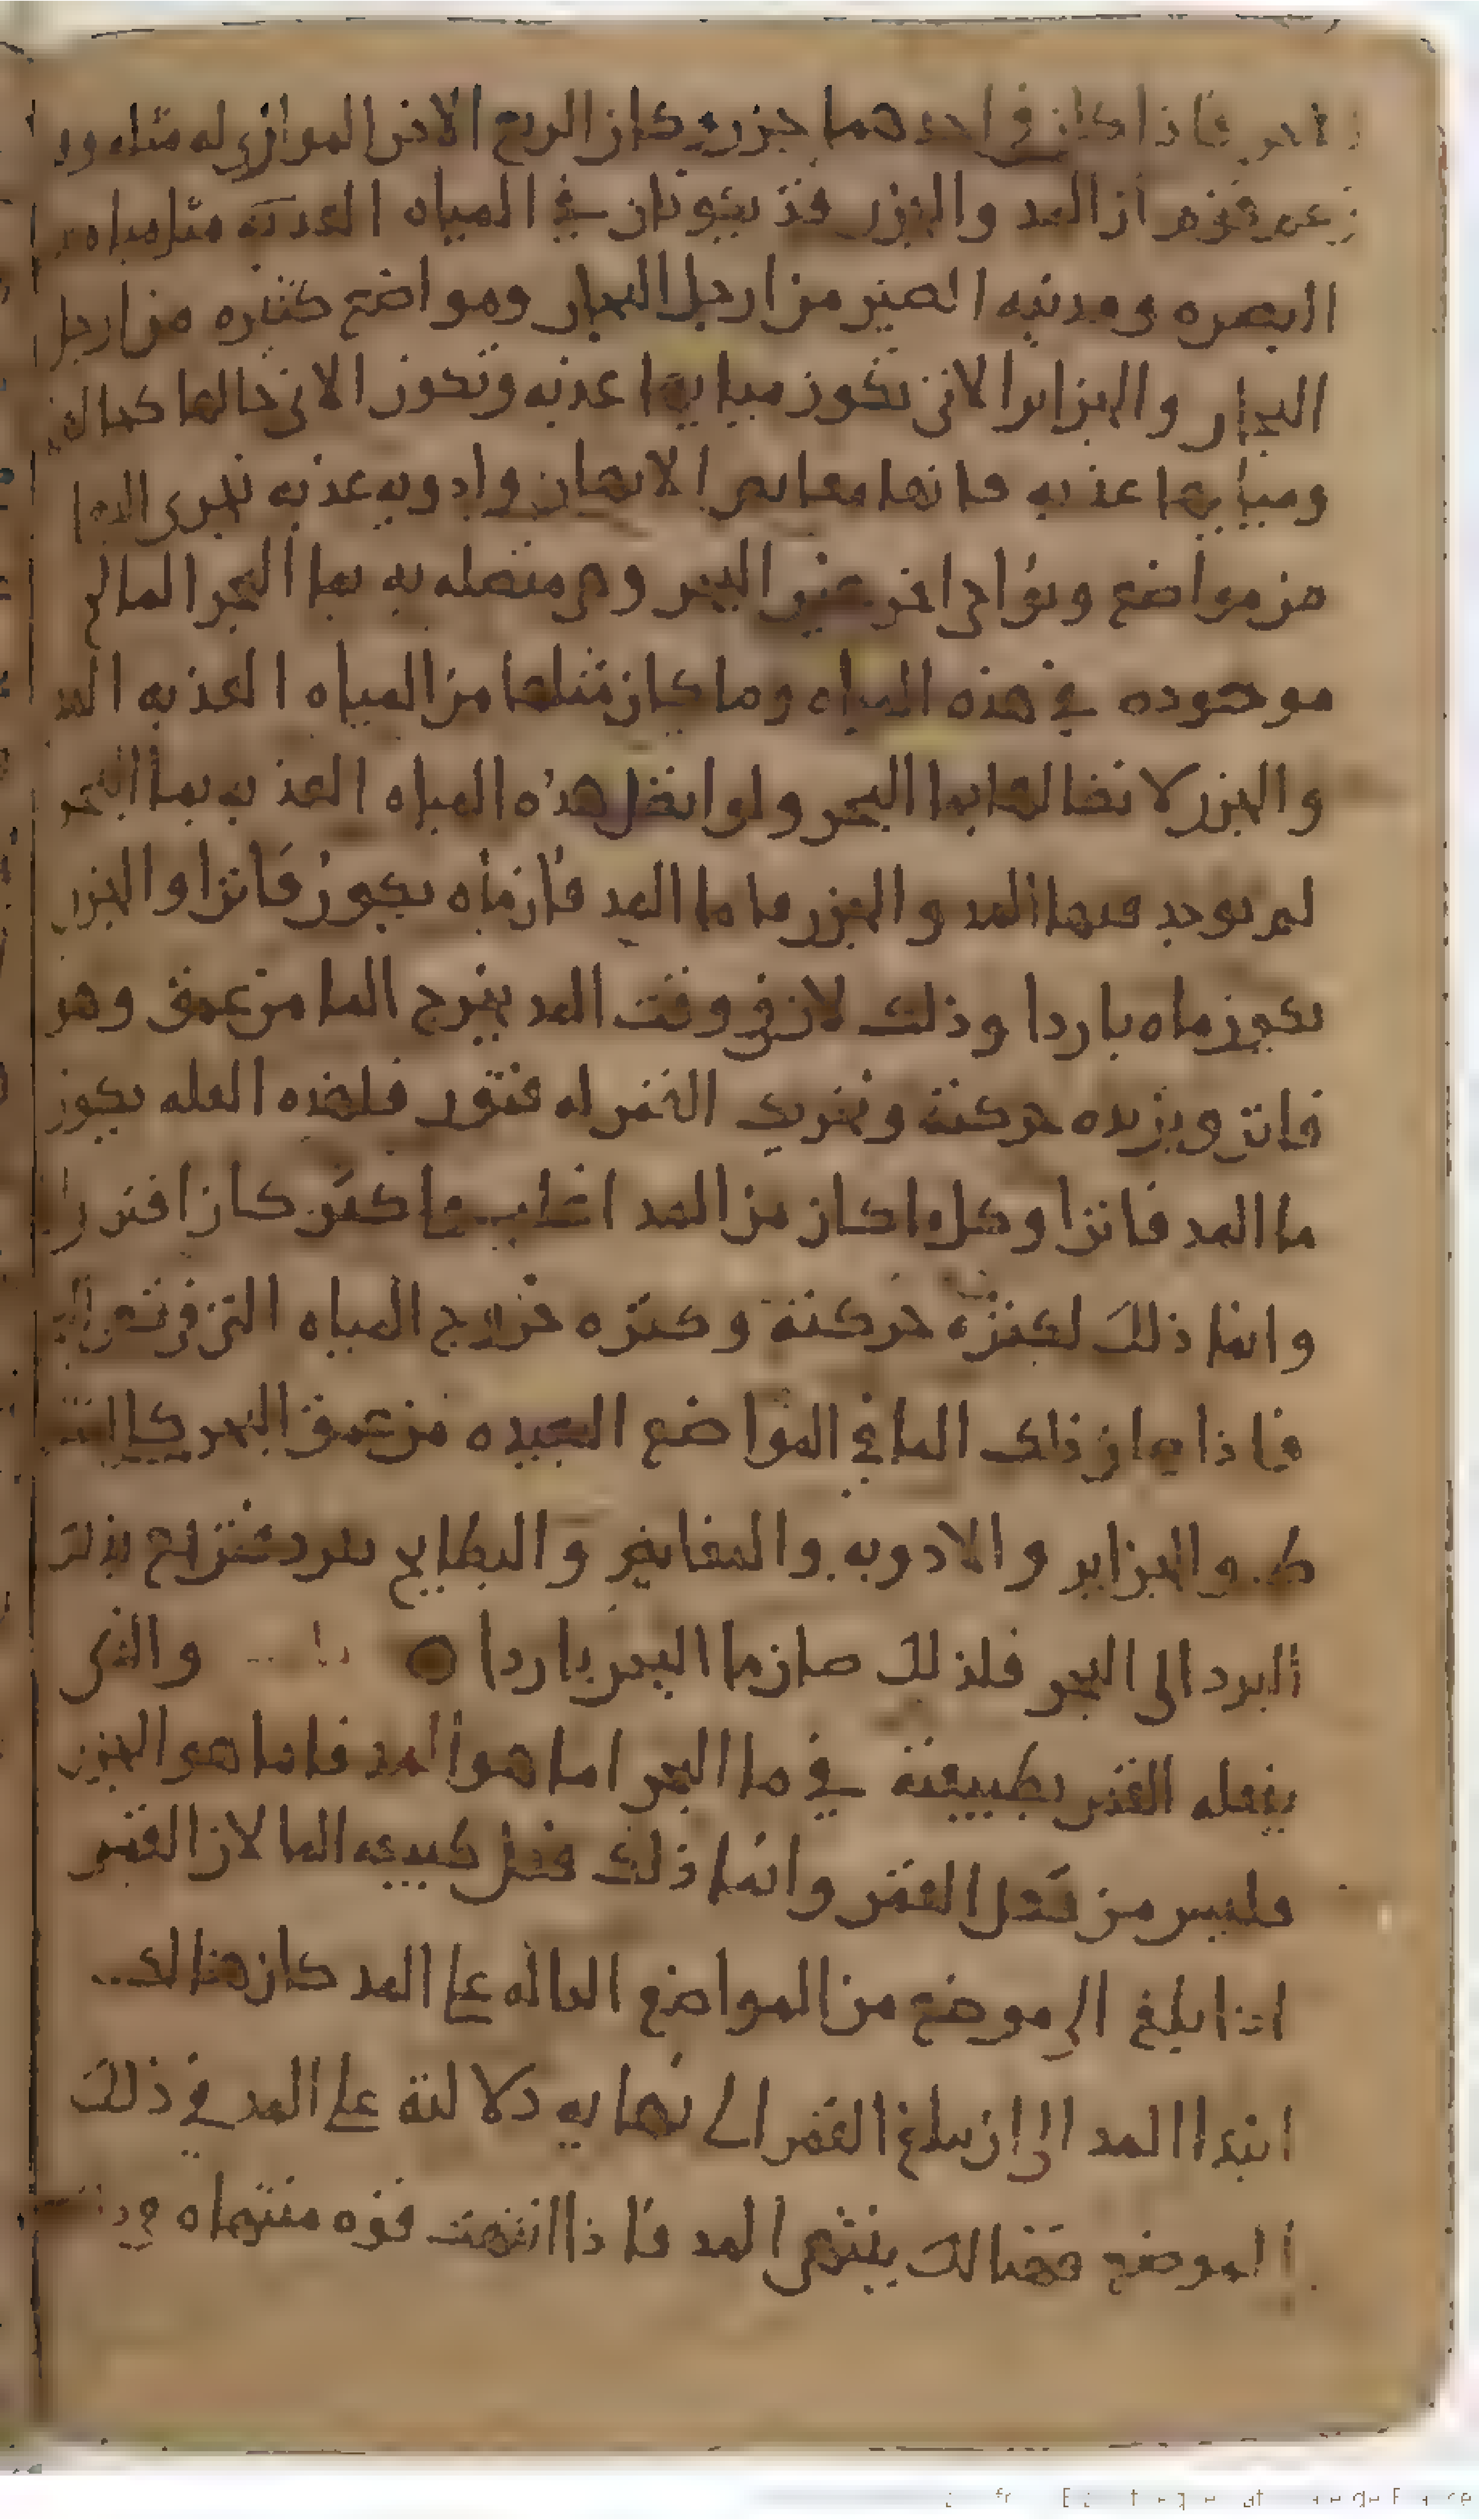 فاذا كان في احدهما جزر كان الربع الاخر الموازي له مثله وقد
زعم قوم ان المد والجزر قد يكونان في المياه العذبة مثل مياه
البصره ومدينه الصين من ارجل البحار ومواضع كثيره من ارجل
البحار والجزاير الاتي تكون مياهها عذبه وتكون الاتي حالها كحال
ومياهها عذبه فانها مغايض الانهار واودیه عذبه تجري اليها
من مواضع ونواحي اخر غير البحر وهي متصله به بما البحر المالح
موجوده في هذه المياه وما كان مثلها من المياه العذبه المد
والجزر لاتصالها بما البحر ولو اتصل هذه المياه العذبه بما البحر
لم يوجد فيها المد والجزر فاما المد فان ماه يكون فاترا والجزر
يكون ماه باردا وذلك لان في وقت المد يخرج الما من عمق وهو
فاتر ويزيده حركته وتحريك القمر له فتور فلهذه العله يكون
ما المد فاترا وكل ما كان من المد اغلب واكثر كان افتر
وانما ذلك لكثره حركته وكثره خروج المياه التي في قعر
فاذا صار ذلك الما في المواضع البعيده من عمق البحر
والجزاير والاودیه والمغايض والبطايح برد فترجع بذلك
البرد الى البحر فلذلك صار ما البحر باردا ○ والذي
يفعله القمر بطبيعته في ما البحر اما هو المد فاما هو الجزر
فليس من فعل القمر وانما ذلك فعل طبيعه الما لان القمر
اذا بلغ الى موضع من المواضع الداله على المد كان هنالك
ابتدا المد الى ان يبلغ القمر الى نهايه دلالته على المد في ذلك
الموضع فهنالك ينتهي المد فاذا انتهت قوه منتهاه